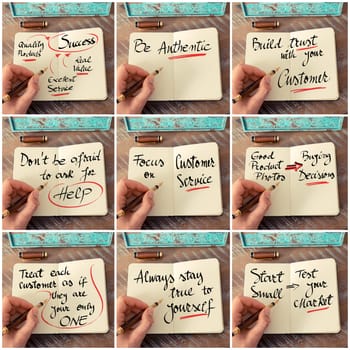 Quality
Product
Success
Real
Value
Excellent
Service
Be Authentic
Build trust
with your
Customer
Don't be afraid
to ask for
HELP
Focus
on
Customer
Service
Good
Product
Photos
Buying
Decisions
Treat each
customer as if
they are
your only
ONE
Always stay
true to
yourself
Start
Small
Test
Your
Market